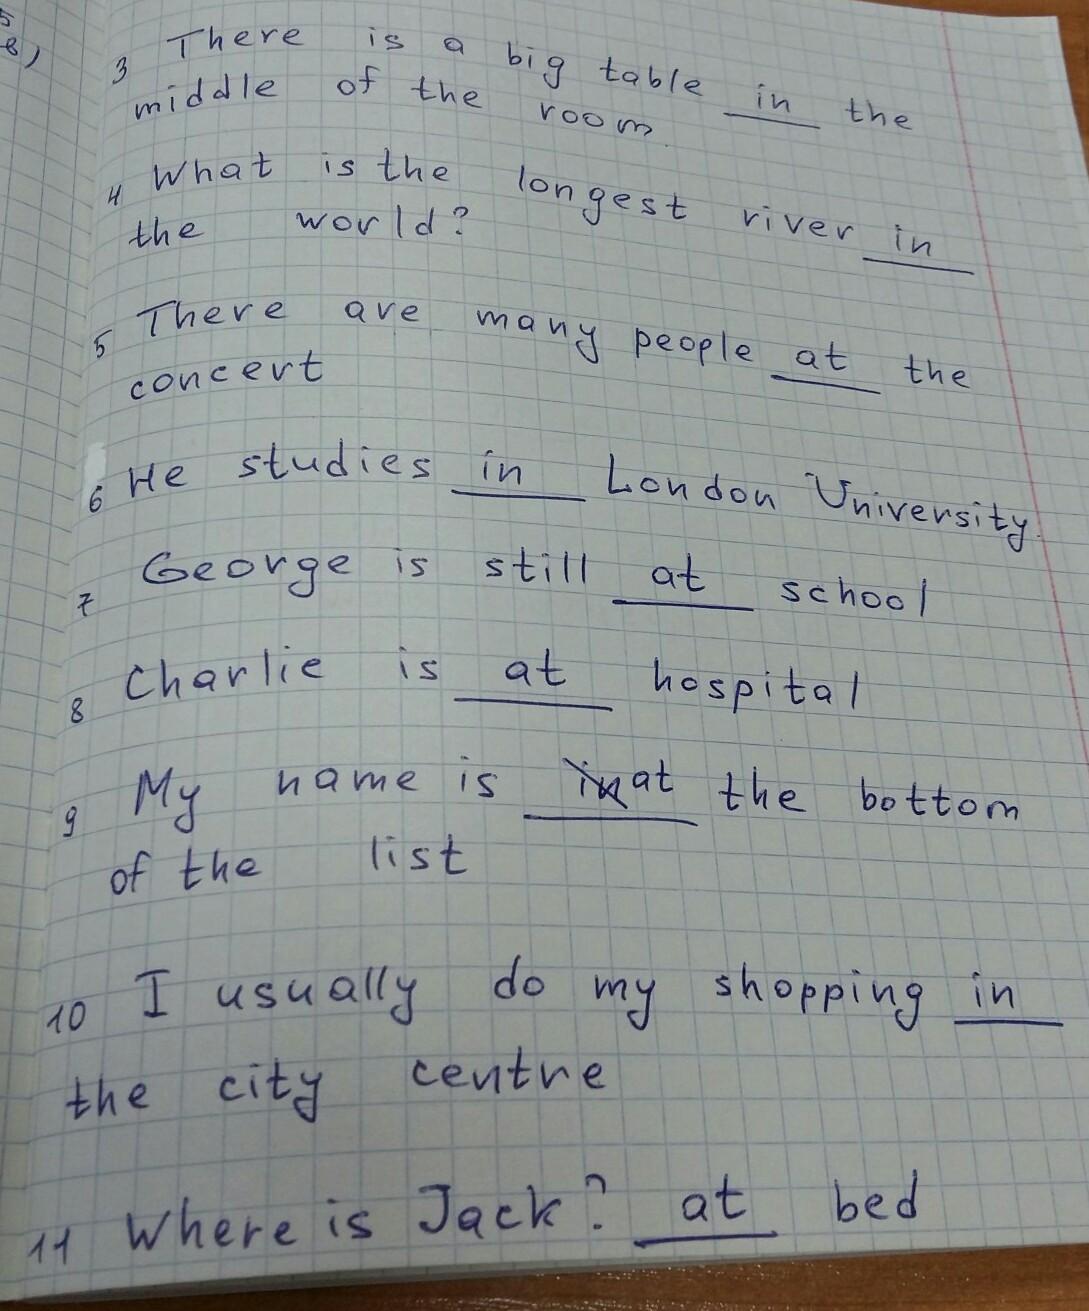 3 There is a big table in the
middle of the room.
4 What is the longest river in
the world?
5 There are many people at the
concert
6 He studies in London University.
7 George is still at school
8 Charlie is at hospital
9 My name is at the bottom
of the list
10 I usually do my shopping in
the city centre
11 Where is Jack? at bed